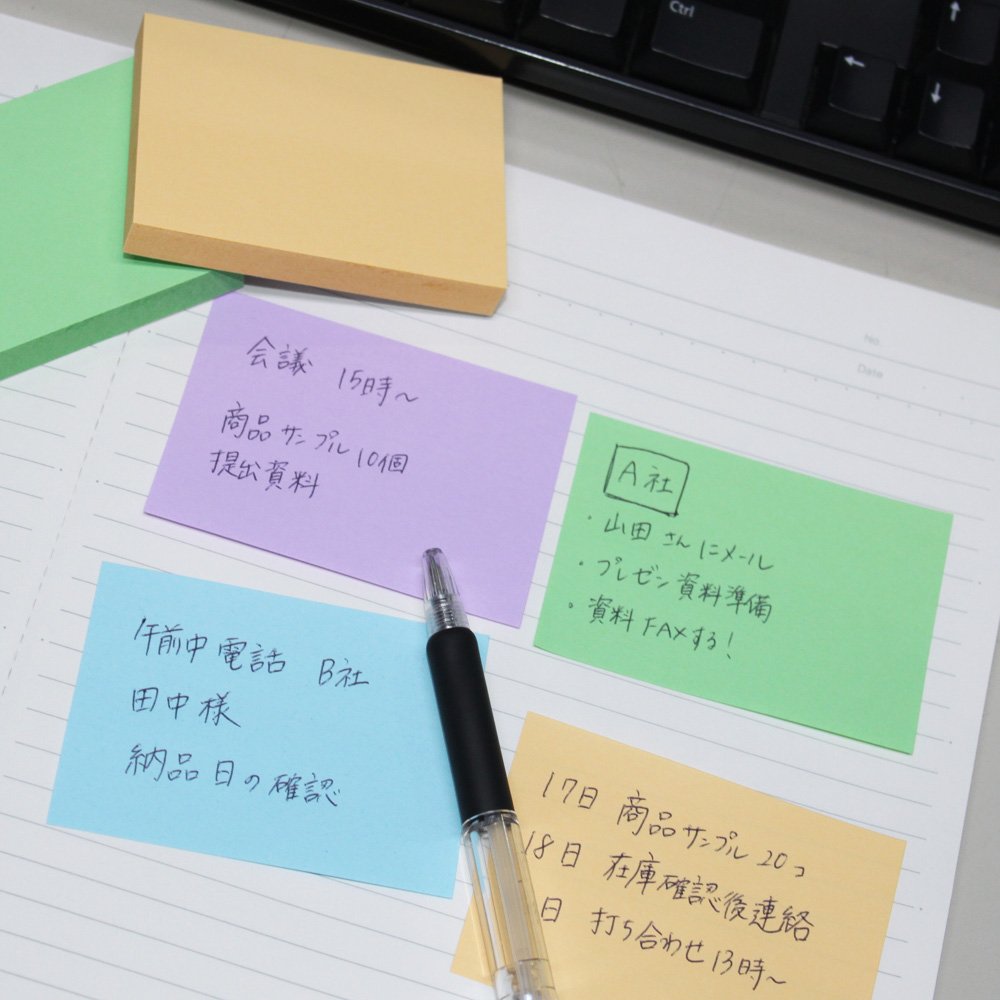 Ctrl
←
↑
↓
No.
Date
会議 15時～
商品サンプル10個
提出資料
A社
・山田さんにメール
・プレゼン資料準備
・資料FAXする!
午前中電話 B社
田中様
納品日の確認
17日 商品サンプル20コ
18日 在庫確認後連絡
日 打ち合わせ13時～